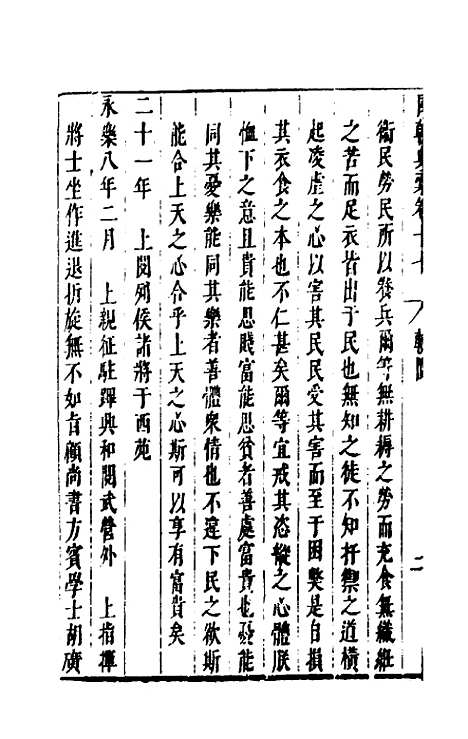 國朝典彙卷十七　朝儀　二
衛民勞民所以養兵爾等無耕耨之勞而充食無織絍
之苦而足衣皆出于民也無知之徒不知扞禦之道橫
起凌虐之心以害其民民受其害而至于困斃是自損
其衣食之本也不仁甚矣爾等宜戒其恣縱之心體朕
恤下之意且貴能思賤富能思貧者善處富貴也憂能
同其憂樂能同其樂者善體衆情也不違下民之欲斯
能合上天之心合乎上天之心斯可以享有富貴矣
二十一年　上閱列侯諸將于西苑
永樂八年二月　上親征駐蹕興和閱武營外　上指揮
將士坐作進退折旋無不如旨顧尚書方賓學士胡廣